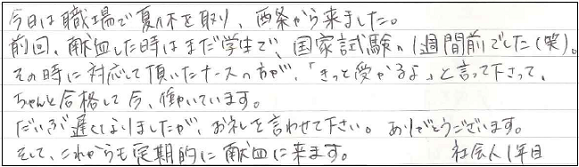 今日は職場で夏休を取り、西条から来ました。
前回、献血した時はまだ学生で、国家試験の1週間前でした(笑)。
その時に対応して頂いたナースの方が、「きっと受かるよ」と言って下さって、
ちゃんと合格して今、働いています。
だいぶ遅くなりましたが、お礼を言わせて下さい。ありがとうございます。
そして、これからも定期的に献血に来ます。 社会人1年目